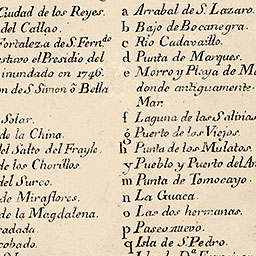 Ciudad de los Reyes.
del Callao.
Fortaleza de S. Fern.do
estuvo el Presidio del
inundado en 1746.
n de S. Simon ô Bella
Solar.
de la China.
del Salto del Frayle.
de los Chorillos.
del Surco.
de Miraflores.
de la Magdalena.
a Arrabal de S. Lazaro.
b Bajo de Bocanegra.
c Rio Cadavaillo.
d Punta de Marques.
e Morro y Playa de
donde antiguamente
Mar.
f Laguna de las Salinas
g Puerto de los Viejos.
h Punta de los Mulatos.
y Pueblo y Puerto del
m Punta de Tomocayo.
n La Guaca.
o Las dos hermanas.
p Paseo nuevo.
q Isla de S. Pedro.